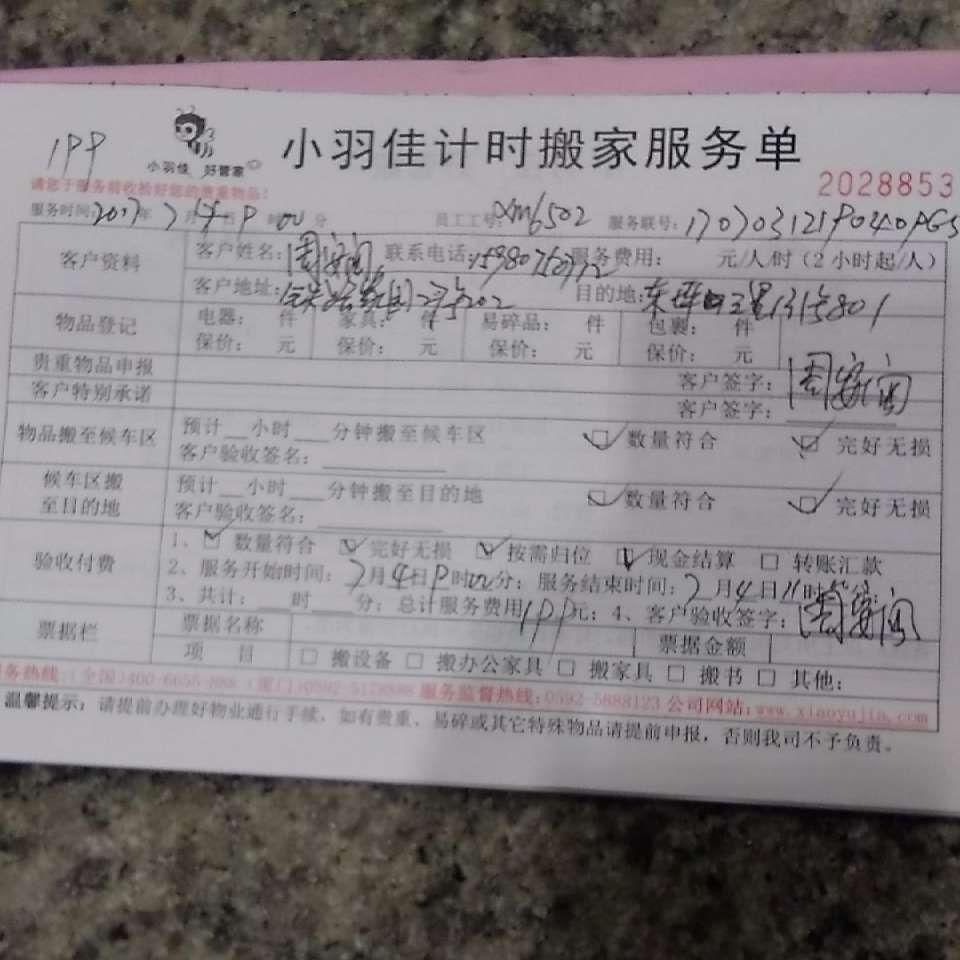 199
小羽佳 好管家
小羽佳计时搬家服务单
请您于服务前收捡好您的贵重物品!
2028853
服务时间:2017年7月4日9时00分 员工工号:XM6502 服务联号:
客户资料 客户姓名: 联系电话: 服务费用: 元/人/时(2小时起/人)
客户地址: 目的地:
物品登记 电器: 件 家具: 件 易碎品: 件 包裹: 件
保价: 元 保价: 元 保价: 元 保价: 元
贵重物品申报 客户签字:
客户特别承诺 客户签字:
物品搬至候车区 预计__小时___分钟搬至候车区 数量符合 完好无损
客户验收签名:
候车区搬至目的地 预计__小时___分钟搬至目的地 数量符合 完好无损
客户验收签名:
验收付费 1、 数量符合 完好无损 按需归位 现金结算 转账汇款
2、服务开始时间:7月4日9时00分;服务结束时间:7月4日11时
3、共计:___时___分;总计服务费用199元;4、客户验收签字:
票据栏 票据名称 票据金额
项 目 搬设备 搬办公家具 搬家具 搬书 其他:
务热线:(全国)400-6655-888 (厦门)0592-5178888 服务监督热线:0592-5888123 公司网站:www.xiaoyujia.com
温馨提示:请提前办理好物业通行手续,如有贵重、易碎或其它特殊物品请提前申报,否则我司不予负责。